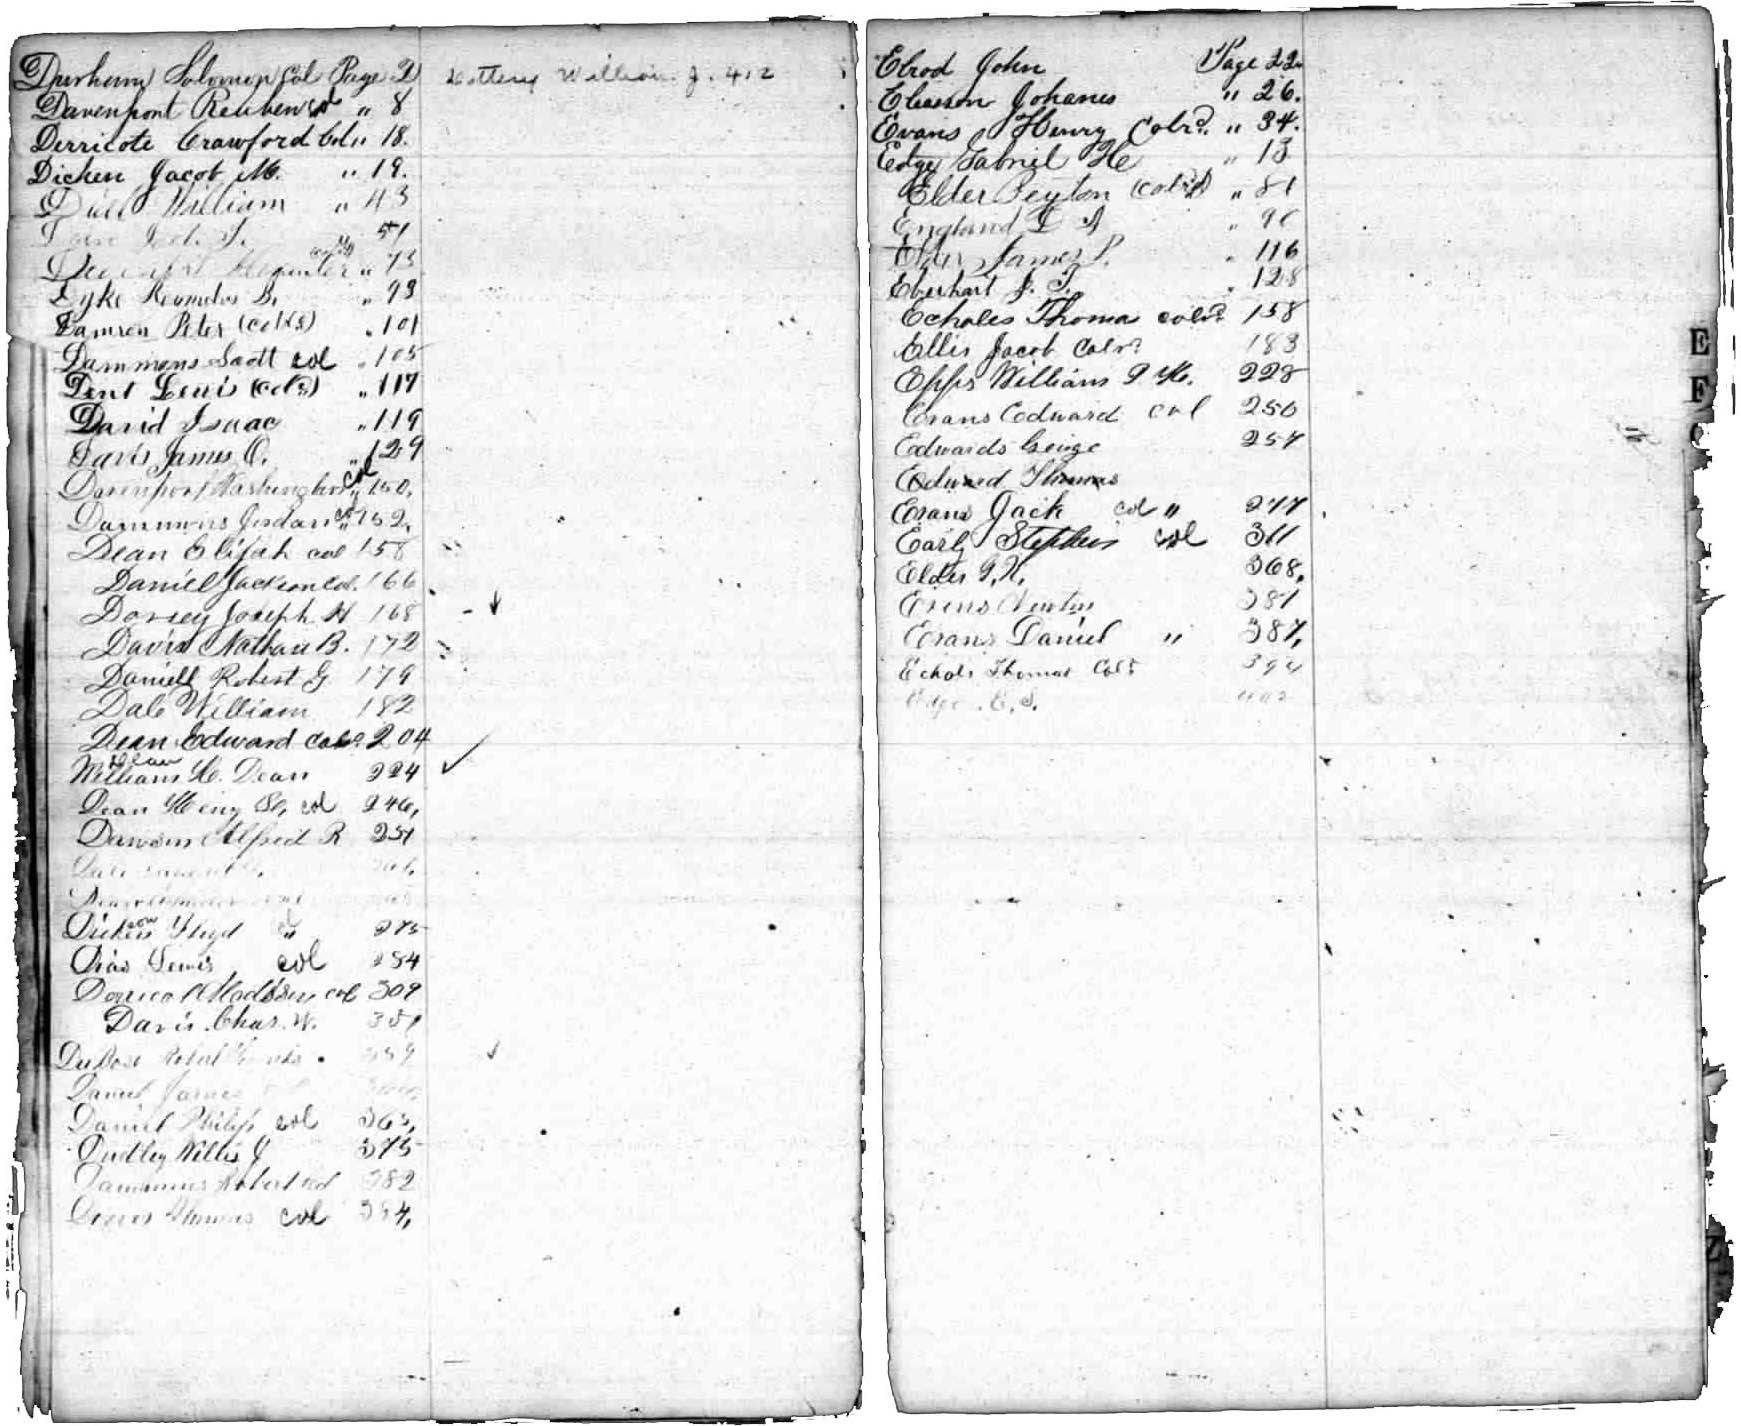 Durham Solomon Col Page 2
Davenport Reuben col " 8
Derricote Crawford Col " 18.
Dicken Jacob M. " 19.
Dill William " 43
" 51
" 73
Dyke B. " 93
Damren Peter (col'd) " 101
Dammons Scott col " 105
Dent Lewis (col'd) " 117
David Isaac " 119
Davis James O. " 129
Davenport Washington col " 150,
Dammons Jordan col " 152,
Dean Elijah col 158
Daniel Jackson Col. 166
Dorsey Joseph H 168
Davis Nathan B. 172
Daniell Robert G 179
Dale William 182
Dean Edward Col 204
Dean
William H. Dean 224
Dean Henry col 246,
Dawson Alfred R 251
Dickson Floyd col 275
Lewis col 284
Derricot Madison col 309
Davis Chas. W. 351
DuBose Robert 359
Daniel James
Daniel Philip col 363,
Dudley Willis J 375
Dammons Robert col 382
Thomas col 384,
William J. 412
Elrod John Page 22
Eliason Johanes " 26.
Evans Henry Colrd. " 34.
Edge Gabriel H " 13
Elder Peyton (col'd) " 81
England " 90
Elder James P. " 116
Eberhart J. T. " 128
Echoles Thomas colrd 158
Ellis Jacob Colrd 183
Epps William P H. 228
Evans Edward col 250
Edwards George 257
Edward Thomas
Evans Jack col " 277
Early Stephen col 311
Elder 368,
Evens Newton 381
Evans Daniel " 387,
Echols Thomas Cold 394
Edge. E. S. 402
E
F